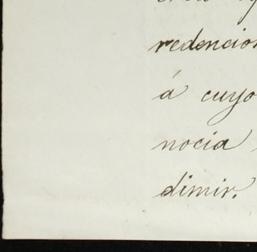 redencion
á cuyo
nocia
dimir.